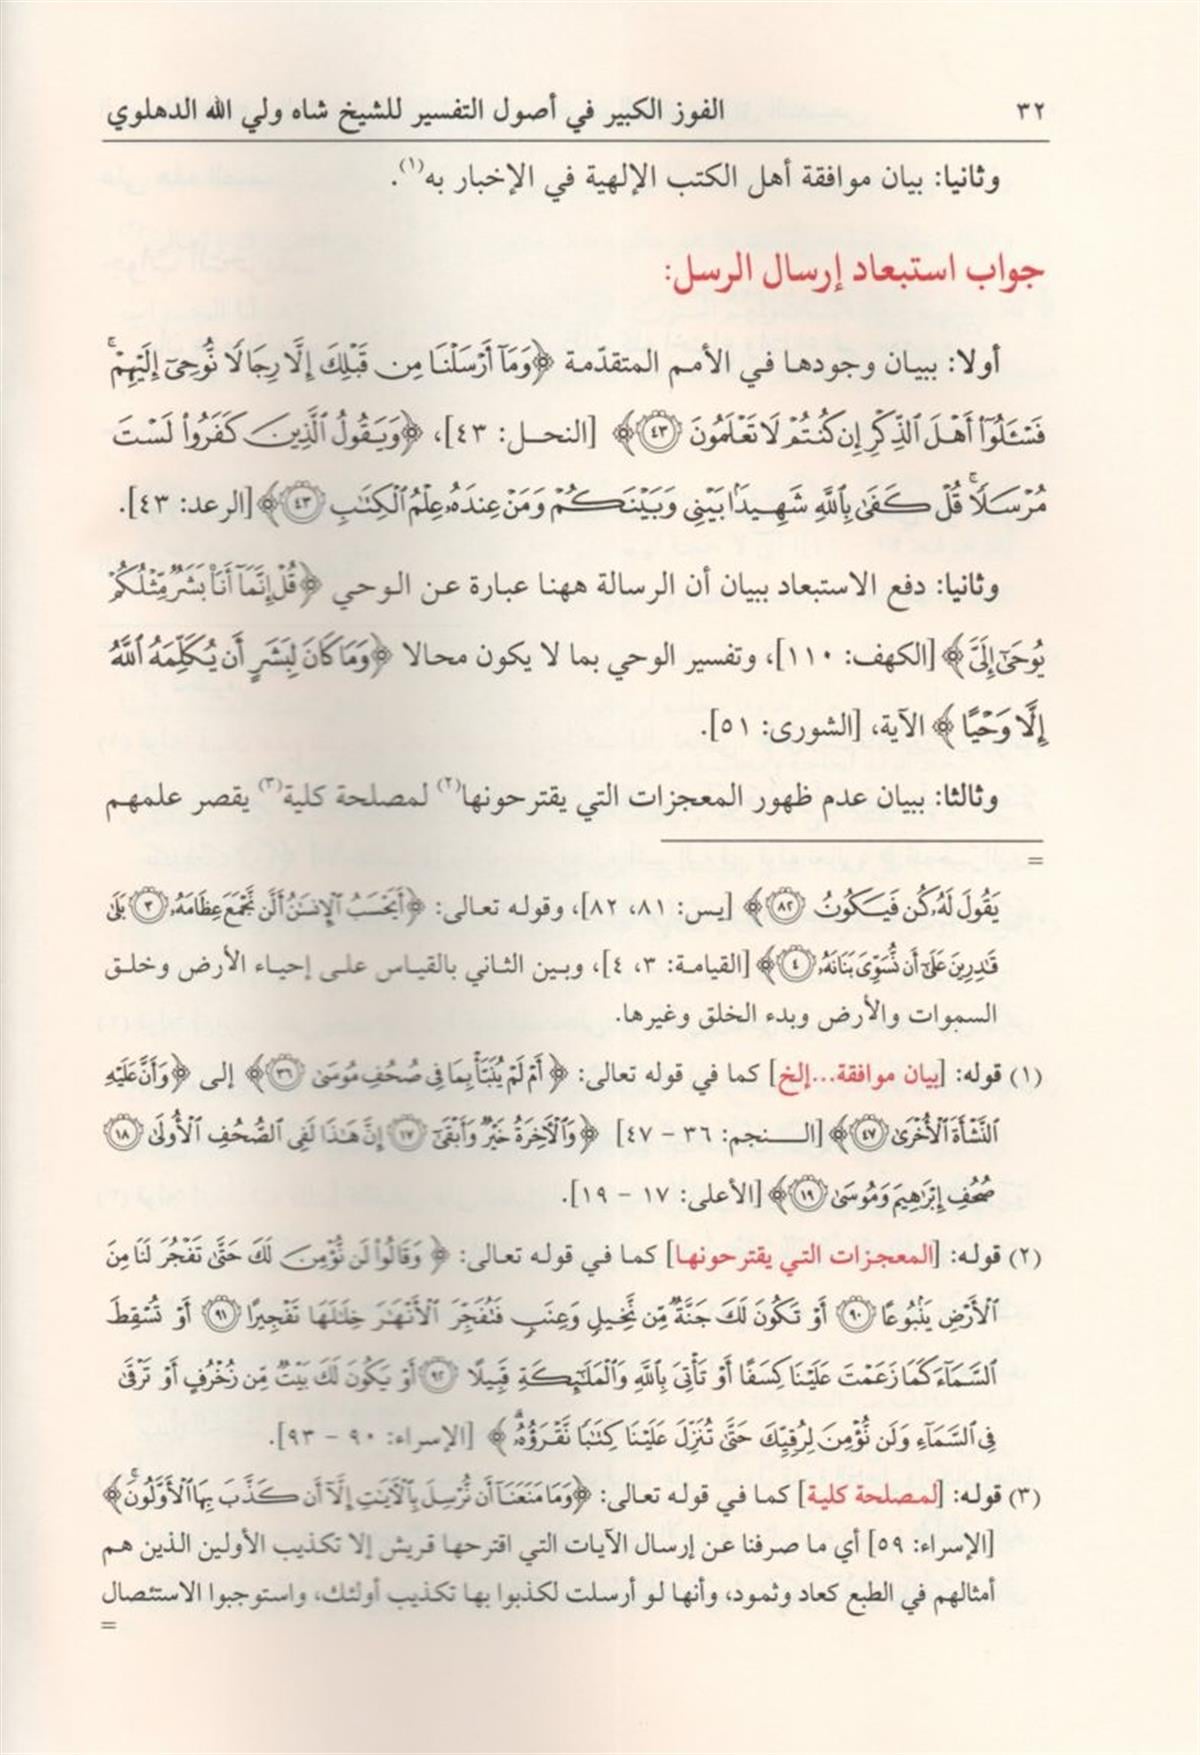 ٣٢ الفوز الكبير في أصول التفسير للشيخ شاه ولي الله الدهلوي
وثانيا: بيان موافقة أهل الكتب الإلهية في الإخبار به(١).
جواب استبعاد إرسال الرسل:
أولا: ببيان وجودها في الأمم المتقدّمة ﴿وَمَآ أَرۡسَلۡنَا مِن قَبۡلِكَ إِلَّا رِجَالًا نُّوحِيٓ إِلَيۡهِمۡۖ
فَسۡـَٔلُوٓاْ أَهۡلَ ٱلذِّكۡرِ إِن كُنتُمۡ لَا تَعۡلَمُونَ ٤٣﴾ [النحل: ٤٣]، ﴿وَيَقُولُ ٱلَّذِينَ كَفَرُواْ لَسۡتَ
مُرۡسَلٗاۚ قُلۡ كَفَىٰ بِٱللَّهِ شَهِيدَۢا بَيۡنِي وَبَيۡنَكُمۡ وَمَنۡ عِندَهُۥ عِلۡمُ ٱلۡكِتَٰبِ ٤٣﴾ [الرعد: ٤٣].
وثانيا: دفع الاستبعاد ببيان أن الرسالة ههنا عبارة عن الوحي ﴿قُلۡ إِنَّمَآ أَنَا۠ بَشَرٞ مِّثۡلُكُمۡ
يُوحَىٰٓ إِلَيَّ﴾ [الكهف: ١١٠]، وتفسير الوحي بما لا يكون محالا ﴿وَمَا كَانَ لِبَشَرٍ أَن يُكَلِّمَهُ ٱللَّهُ
إِلَّا وَحۡيًا﴾ الآية، [الشورى: ٥١].
وثالثا: ببيان عدم ظهور المعجزات التي يقترحونها(٢) لمصلحة كلية(٣) يقصر علمهم
=
يَقُولَ لَهُۥ كُن فَيَكُونُ ٨٢﴾ [يس: ٨١، ٨٢]، وقوله تعالى: ﴿أَيَحۡسَبُ ٱلۡإِنسَٰنُ أَلَّن نَّجۡمَعَ عِظَامَهُۥ ٣ بَلَىٰ
قَٰدِرِينَ عَلَىٰٓ أَن نُّسَوِّيَ بَنَانَهُۥ ٤﴾ [القيامة: ٣، ٤]، وبين الثاني بالقياس على إحياء الأرض وخلق
السموات والأرض وبدء الخلق وغيرها.
(١) قوله: [بيان موافقة...إلخ] كما في قوله تعالى: ﴿أَمۡ لَمۡ يُنَبَّأۡ بِمَا فِي صُحُفِ مُوسَىٰ ٣٦﴾ إلى ﴿وَأَنَّ عَلَيۡهِ
ٱلنَّشۡأَةَ ٱلۡأُخۡرَىٰ ٤٧﴾ [النجم: ٣٦ – ٤٧] ﴿وَٱلۡأٓخِرَةُ خَيۡرٞ وَأَبۡقَىٰٓ ١٧ إِنَّ هَٰذَا لَفِي ٱلصُّحُفِ ٱلۡأُولَىٰ ١٨
صُحُفِ إِبۡرَٰهِيمَ وَمُوسَىٰ ١٩﴾ [الأعلى: ١٧ – ١٩].
(٢) قوله: [المعجزات التي يقترحونها] كما في قوله تعالى: ﴿وَقَالُواْ لَن نُّؤۡمِنَ لَكَ حَتَّىٰ تَفۡجُرَ لَنَا مِنَ
ٱلۡأَرۡضِ يَنۢبُوعًا ٩٠ أَوۡ تَكُونَ لَكَ جَنَّةٞ مِّن نَّخِيلٖ وَعِنَبٖ فَتُفَجِّرَ ٱلۡأَنۡهَٰرَ خِلَٰلَهَا تَفۡجِيرًا ٩١ أَوۡ تُسۡقِطَ
ٱلسَّمَآءَ كَمَا زَعَمۡتَ عَلَيۡنَا كِسَفًا أَوۡ تَأۡتِيَ بِٱللَّهِ وَٱلۡمَلَٰٓئِكَةِ قَبِيلًا ٩٢ أَوۡ يَكُونَ لَكَ بَيۡتٞ مِّن زُخۡرُفٍ أَوۡ تَرۡقَىٰ
فِي ٱلسَّمَآءِ وَلَن نُّؤۡمِنَ لِرُقِيِّكَ حَتَّىٰ تُنَزِّلَ عَلَيۡنَا كِتَٰبٗا نَّقۡرَؤُهُۥۗ﴾ [الإسراء: ٩٠ – ٩٣].
(٣) قوله: [لمصلحة كلية] كما في قوله تعالى: ﴿وَمَا مَنَعَنَآ أَن نُّرۡسِلَ بِٱلۡأٓيَٰتِ إِلَّآ أَن كَذَّبَ بِهَا ٱلۡأَوَّلُونَۚ﴾
[الإسراء: ٥٩] أي ما صرفنا عن إرسال الآيات التي اقترحها قريش إلا تكذيب الأولين الذين هم
أمثالهم في الطبع كعاد وثمود، وأنها لو أرسلت لكذبوا بها تكذيب أولئك، واستوجبوا الاستئصال
=